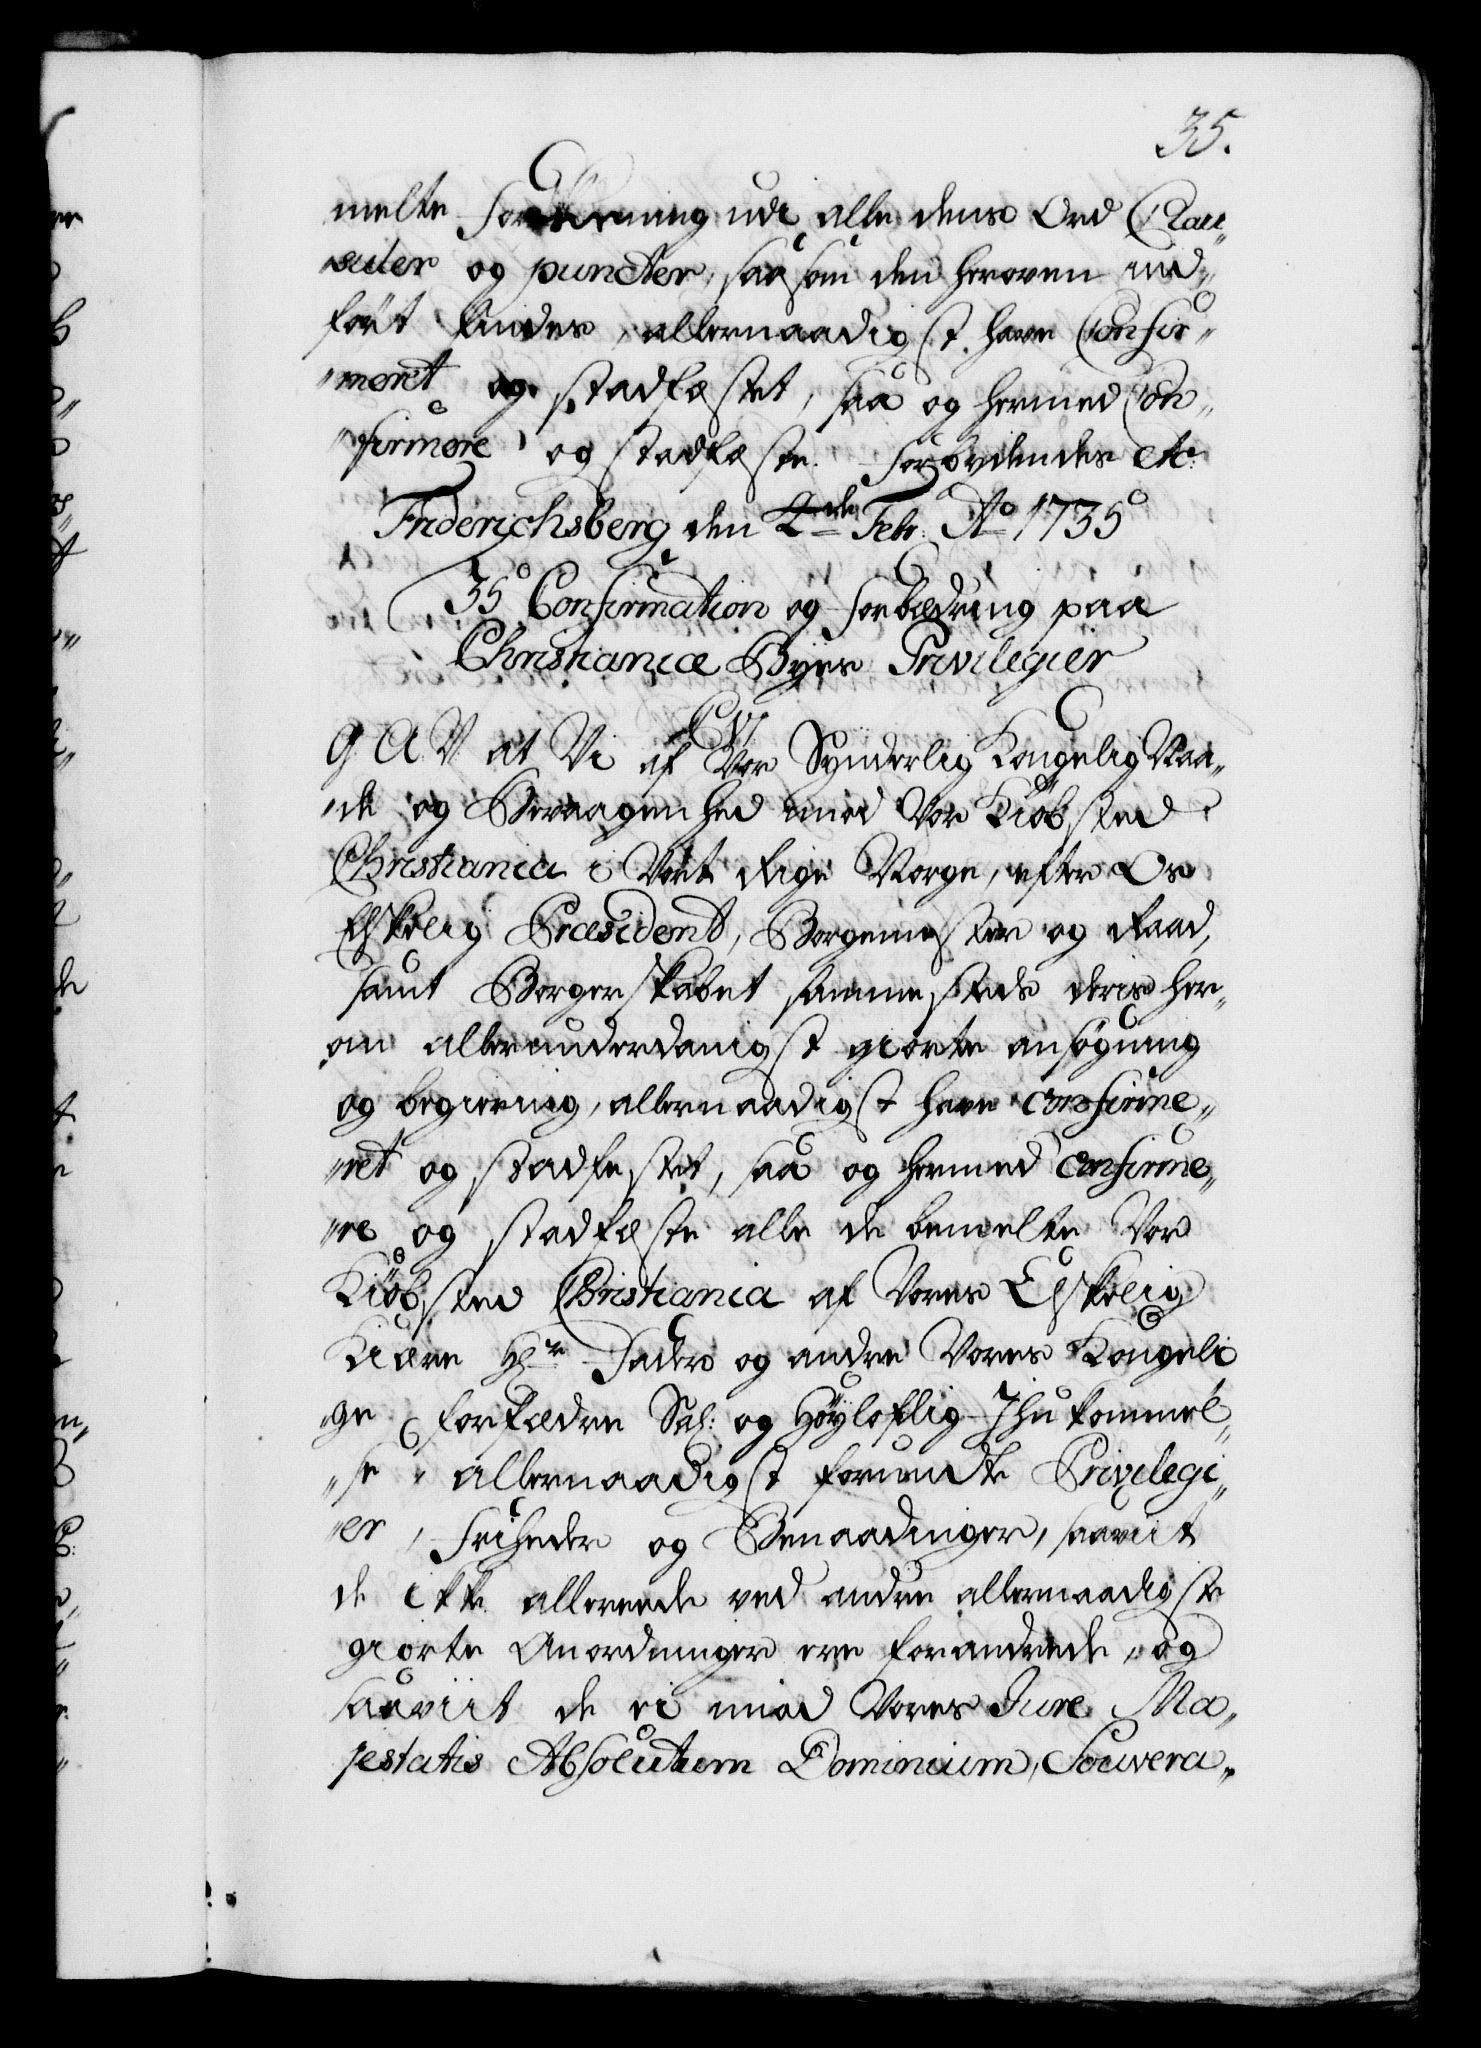 35.
melte Forskrivning udi alle dens Ord Clau„
„suler og puncter, saasom den heroven ind„
ført findes, allernaadigst have Confir„
„meret og stadfæstet, saa og hermed Con„
„firmere og stadfæste. Forbydendes etc:
Friderichsberg den 4de Febr: Ao 1735
35 Confirmation og Forbædring paa
Christianiæ Byes Privilegier
G A V at Vi af Vor Synderlig Kongelig Naa„
„de og Bevaagenhed imod Vor Kiøbsted
Christiania i Vort Rige Norge, efter Os
Elskelig Præsident, Borgemester og Raad,
samt Borgerskabet sammesteds deris her„
„om allerunderdanigst giorte ansøgning
og begiering, allernaadigst have confirme„
„ret og stadfestet, saa og hermed confirme„
„re og stadfæste alle de bemelte Vor
Kiøbsted Christiania af Vores Elskelig
Kiære Hr Fader og andre Vores Kongeli
„ge Forfædre Sal: og Høyloflig Ihukommel„
„se allernaadigst forundte Privilegi„
„er, Friheder og Benaadinger, saaviit
de ikke allerede ved andre allernaadigste
giorte Anordninger ere forandrede, og
saaviit de ei imod Vores Jure Ma„
jestatis Absolutum Dominium, Souvera„